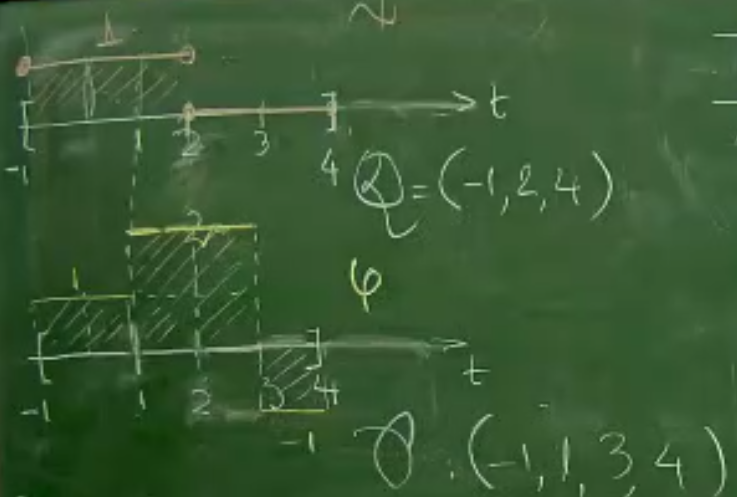 1
t
-1 1 2 3 4
Q=(-1,2,4)
2
1
φ
t
-1 1 2 3 4
-1
P:(-1,1,3,4)